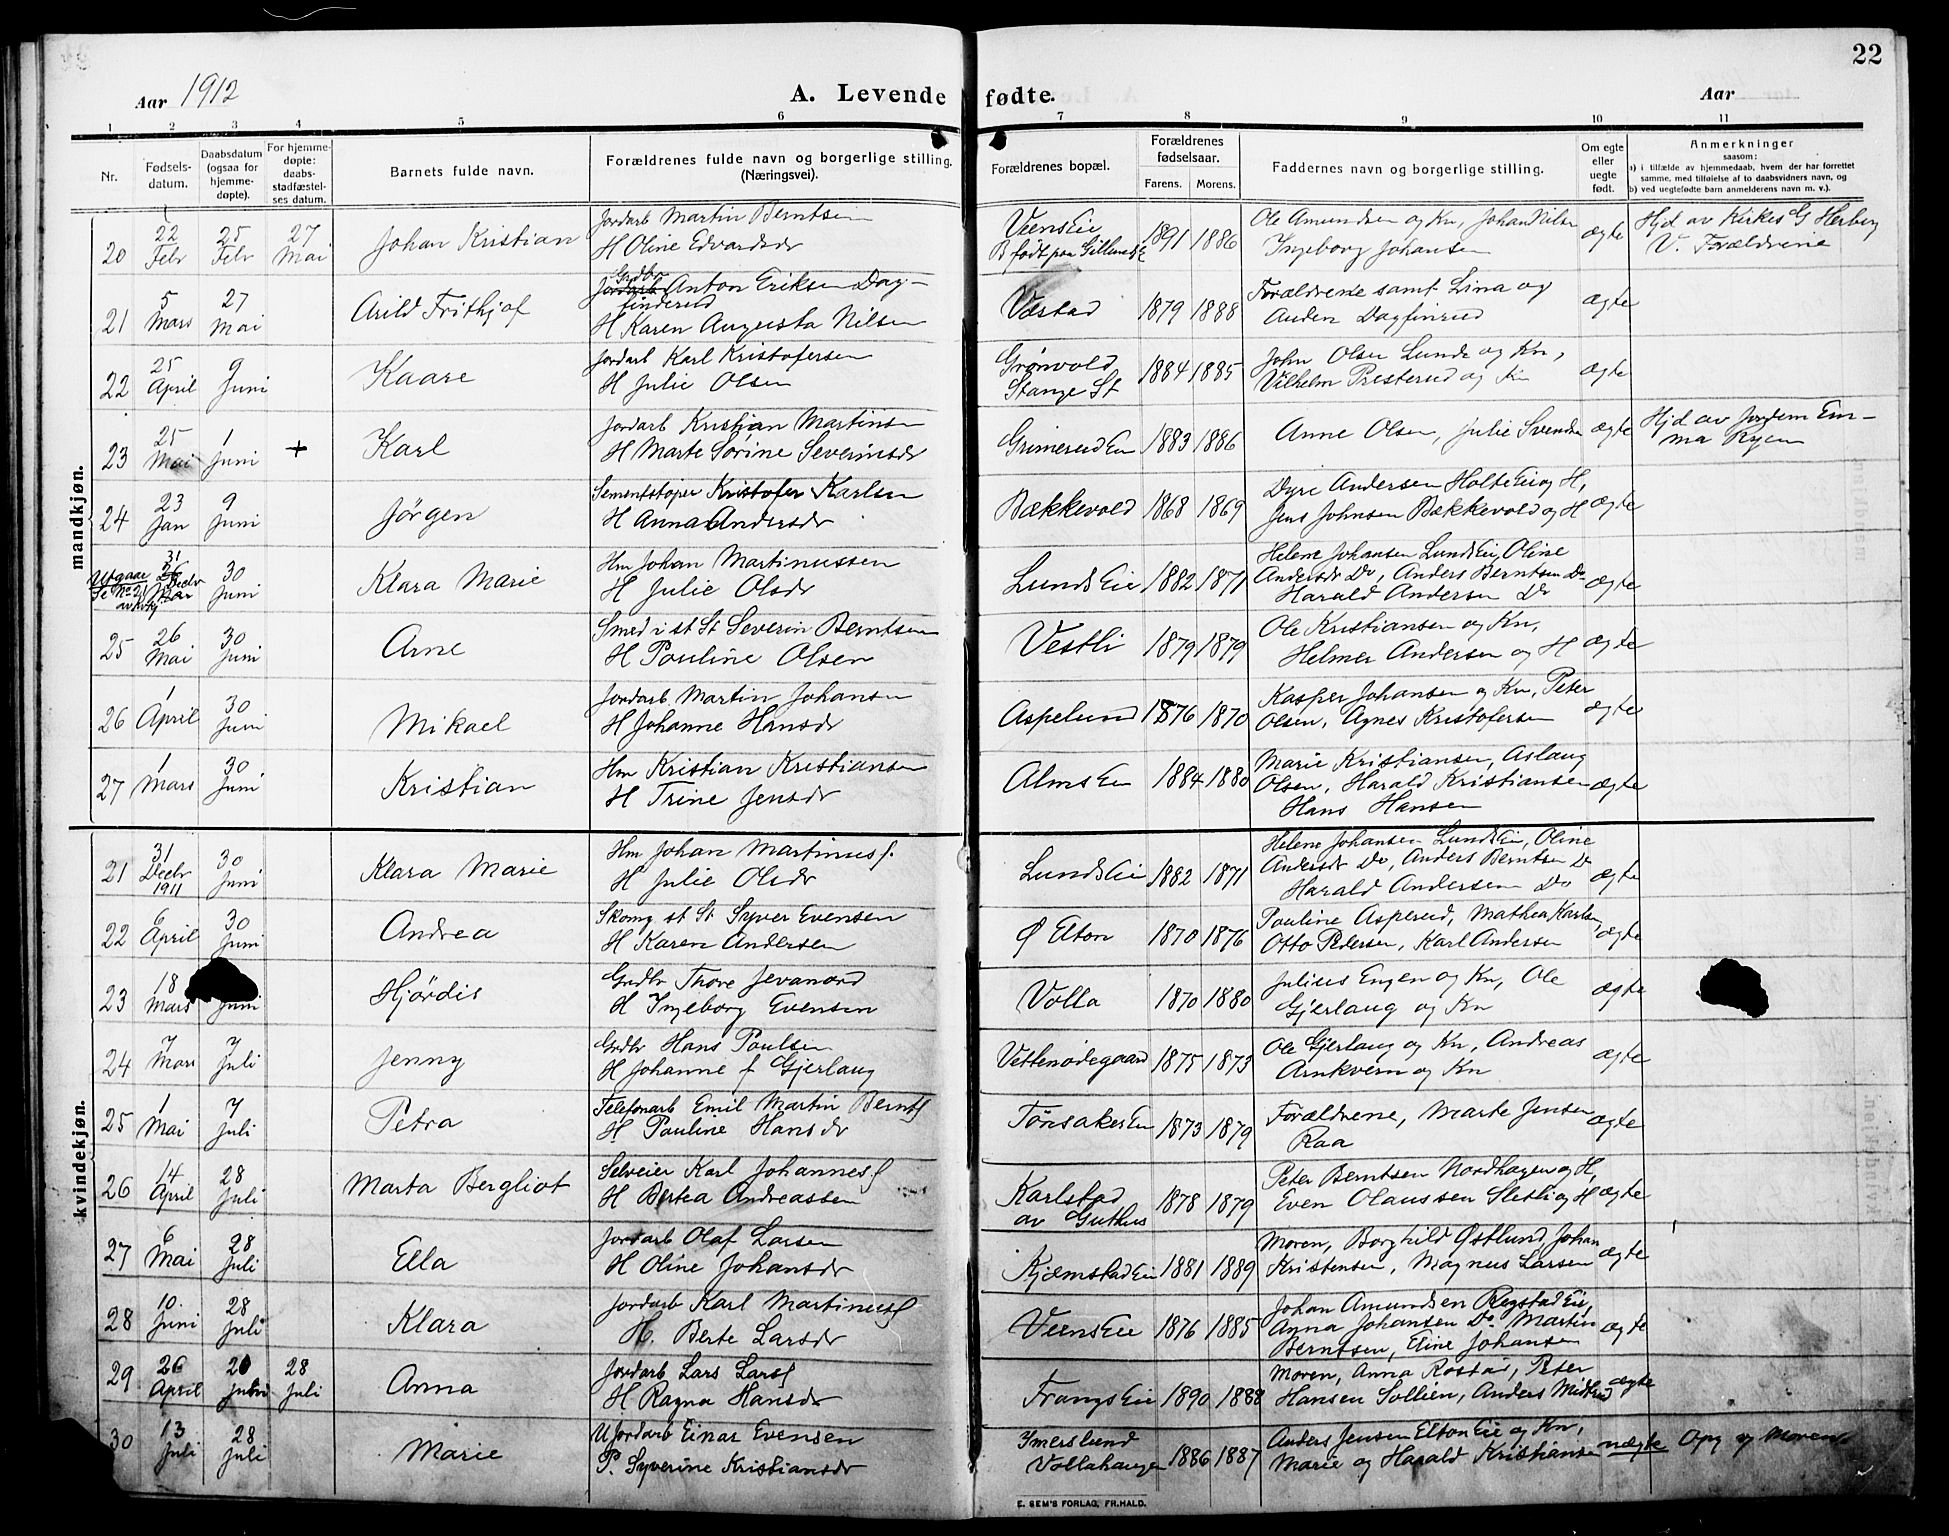 22
Aar 1912
A. Levende fødte.
Aar
1 2 3 4 5 6 7 8 9 10 11
Nr.
Fødsels-
datum.
Daabsdatum
(ogsaa for
hjemme-
døpte).
For hjemme-
døpte:
daabs-
stadfæstel-
ses datum.
Barnets fulde navn.
Forældrenes fulde navn og borgerlige stilling.
(Næringsvei).
Forældrenes bopæl.
Forældrenes
fødselsaar.
Farens. Morens.
Faddernes navn og borgerlige stilling.
Om egte
eller
uegte
født.
Anmerkninger
saasom:
a) i tilfælde av hjemmedaab, hvem der har forrettet
samme, med tilføielse af to daabsvidners navn, og
b) ved uegtefødte barn anmelderens navn m. v.).
mandkjøn.
20 22 Febr 25 Febr 27 Mai Johan Kristian
Jordarb Martin Berntsen
H Oline Edvardsdr
Veens Eie
B født paa Gillund E
1891 1886
Ole Amundsen og Kn, Johan Nilsen
Ingeborg Johansen
ægte
Hjd av Kirkes G Herberg
V. Forældrene
21 5 Mars 27 Mai Arild Frithjof
Grdbr Anton Eriksen Dag-
finderud
H Karen Augusta Nilsen
Væstad 1879 1888
Forældrene samt Lina og
Auden Dagfinrud
ægte
22 25 April 9 Juni Kaare
Jordarb Karl Kristofersen
H Julie Olsen
Grønvold
Stange St
1884 1885
John Olsen Lunde og Kn,
Vilhelm Presterud og Kn
ægte
23 25 Mai 1 Juni + Karl
Jordarb Kristian Martinsen
H Marte Sørine Severinsdr
Grimerud Eie 1883 1886
Anne Olsen, Julie Svendsen
ægte
Hjd av Jordem Em-
ma Ryen
24 23 Jan 9 Juni Jørgen
Sementstøper Kristofer Karlsen
H Anna Andersdr
Bækkevold 1868 1869
Dyre Andersen Holte Eie og H,
Jens Johnsen Bækkevold og H
ægte
Utgaar
Se No 21
31 Decbr
30 Juni Klara Marie
Hm Johan Martinussen
H Julie Olsdr
Lunds Eie 1882 1871
Helene Johansen Lunds Eie, Oline
Andersdr Do, Anders Berntsen Do
Harald Andersen Do
ægte
25 26 Mai 30 Juni Arne
Smed i st St Severin Berntsen
H Pouline Olsen
Vestli 1879 1879
Ole Kristiansen og Kn,
Helmer Andersen og H
ægte
26 1 April 30 Juni Mikael
Jordarb Martin Johansen
H Johanne Hansdr
Aspelund 1876 1870
Kasper Johansen og Kn, Peter
Olsen, Agnes Kristofersen
ægte
27 1 Mars 30 Juni Kristian
Hm Kristian Kristiansen
H Trine Jensdr
Alms Eie 1884 1880
Marie Kristiansen, Aslaug
Olsen, Harald Kristiansen
Hans Hansen
ægte
kvindekjøn.
21 31 Decbr 1911 30 Juni Klara Marie
Hm Johan Martinusf.
H Julie Olsdr
Lunds Eie 1882 1871
Helene Johansen Lunds Eie, Oline
Andersdr Do, Anders Berntsen Do
Harald Andersen Do
ægte
22 6 April 30 Juni Andrea
Skomg st St Syver Evensen
H Karen Andersen
Ø Elton 1870 1876
Pauline Asperud, Mathea Karlsen,
Otto Pedersen, Karl Andersen
ægte
23 18 Mars Juni Hjørdis
Grdbr Thore Jevanord
H Ingeborg Evensen
Volla 1870 1880
Julius Engen og Kn, Ole
Gjerlaug og Kn
ægte
24 7 Mars 7 Juli Jenny
Grdbr Hans Poulsen
H Johanne f Gjerlaug
Vettenødegaard 1875 1873
Ole Gjerlaug og Kn, Andreas
Arnkvern og Kn
ægte
25 1 Mai 7 Juli Petra
Telefonarb Emil Martin Berntf
H Pauline Hansdr
Tønsaker Eie 1873 1879
Forældrene, Marte Jensen
Raa
ægte
26 14 April 28 Juli Marta Bergliot
Selveier Karl Johannesf
H Bertea Andreassen
Karlstad
av Guthus
1878 1879
Peter Berntsen Nordhagen og H,
Even Olaussen Sletli og H
ægte
27 6 Mai 28 Juli Ella
Jordarb Olaf Larsen
H Oline Johansdr
Kjemstad Eie 1881 1889
Moren, Borghild Østlund, Johan
Kristensen, Magnus Larsen
ægte
28 10. Juni 28 Juli Klara
Jordarb Karl Martinusf
H. Berte Larsdr
Veens Eie 1876 1885
Johan Amundsen Rogstad Eie,
Anna Johansen Do. Martin
Berntsen, Eline Johansen
ægte
29 26 April 20 Juni 28 Juli Anna
Jordarb Lars Larsf
H. Ragna Hansdr
Frangs Eie 1890 1888
Moren, Anna Rostad, Peter
Hansen Sollien, Anders Midtrud
ægte
30 13 Juli 28 Juli Marie
U Jordarb Einar Evensen
P. Syverine Kristiansdr
Imerslund
Vollahaugen
1886 1887
Anders Jensen Elton Eie og Kn,
Marie og Harald Kristiansen
uægte
Opg av Moren
E. SEM'S FORLAG, FR.HALD.